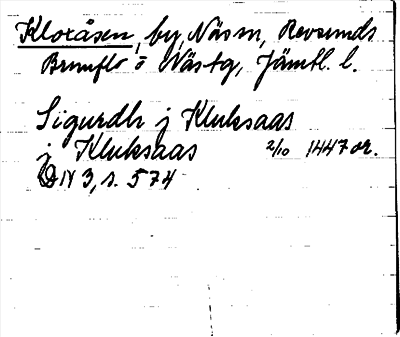 Kloxåsen, by, Näs sn, Revsunds
Brunflo o Näs tg, Jämtl. l.
Sigurdh j Kluksaas
j Kluksaas 2/10 1447 or.
DN 3, s. 574